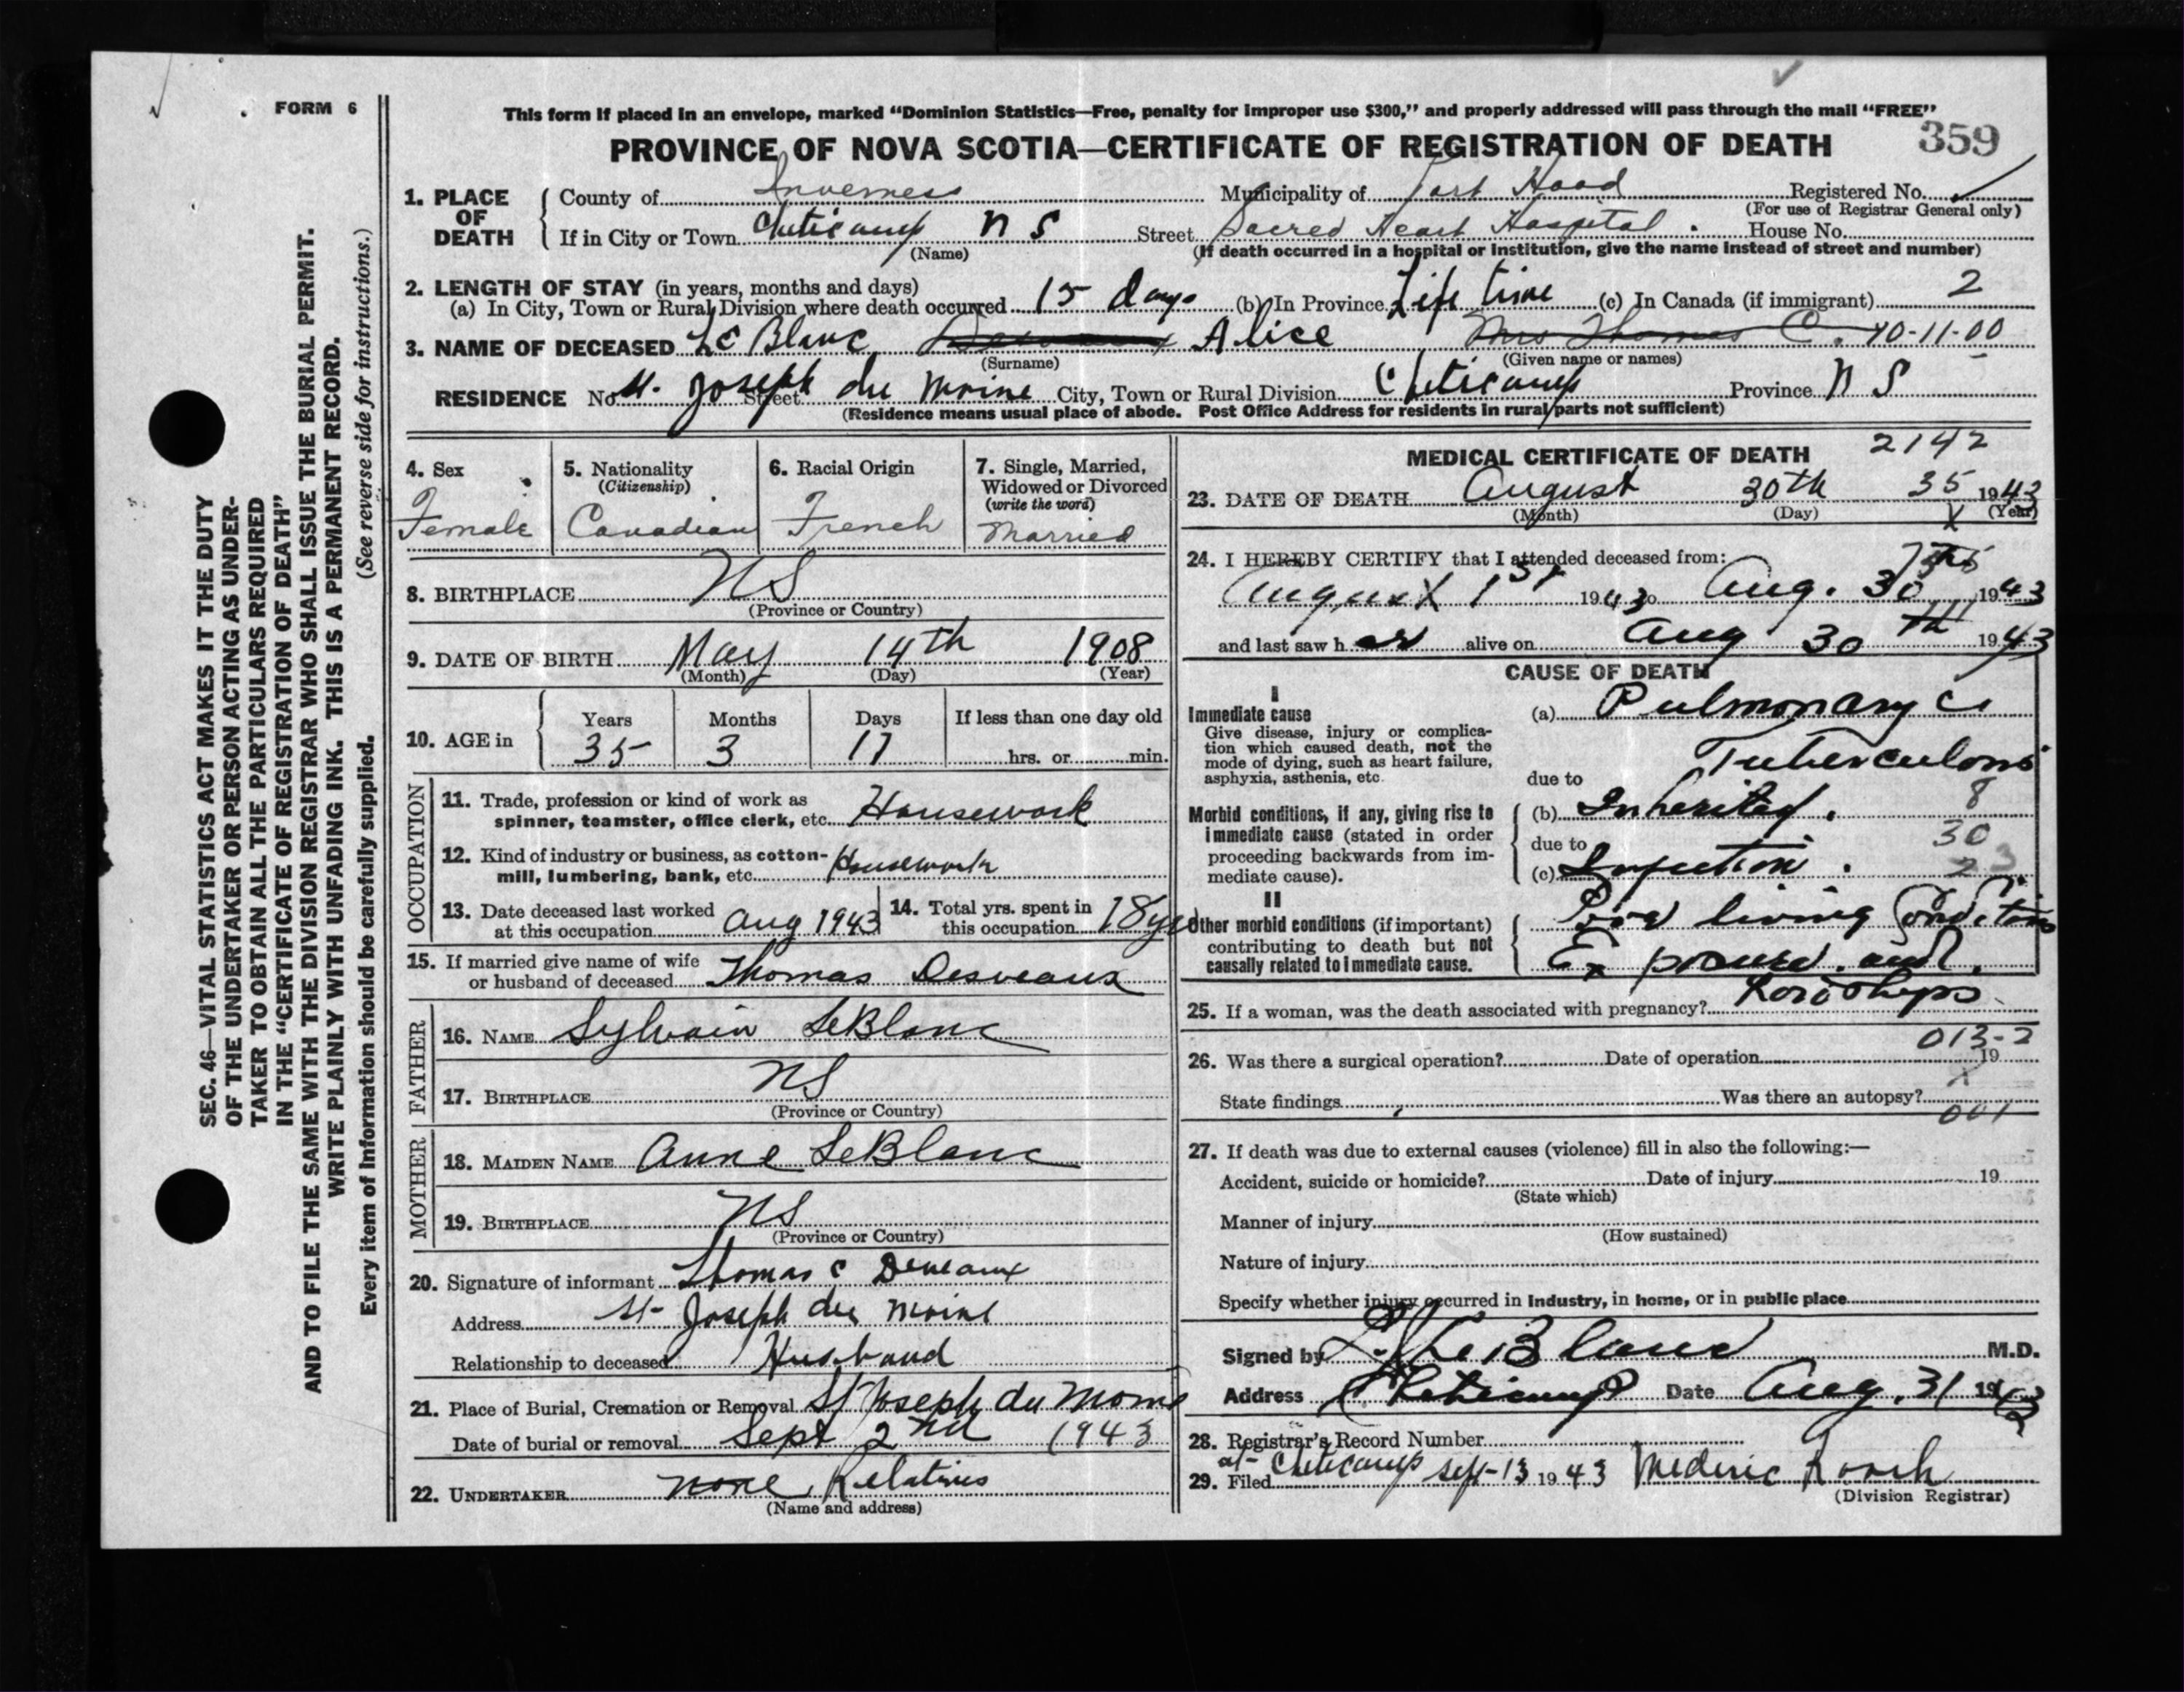 FORM 6
This form if placed in an envelope, marked “Dominion Statistics—Free, penalty for improper use $300,” and properly addressed will pass through the mail “FREE”
PROVINCE OF NOVA SCOTIA—CERTIFICATE OF REGISTRATION OF DEATH 359
SEC. 46—VITAL STATISTICS ACT MAKES IT THE DUTY
OF THE UNDERTAKER OR PERSON ACTING AS UNDER-
TAKER TO OBTAIN ALL THE PARTICULARS REQUIRED
IN THE “CERTIFICATE OF REGISTRATION OF DEATH”
AND TO FILE THE SAME WITH THE DIVISION REGISTRAR WHO SHALL ISSUE THE BURIAL PERMIT.
WRITE PLAINLY WITH UNFADING INK. THIS IS A PERMANENT RECORD.
(See reverse side for instructions.)
Every item of information should be carefully supplied.
1. PLACE OF DEATH
County of Inverness Municipality of Port Hood Registered No.
(For use of Registrar General only)
If in City or Town Cheticamp N S Street Sacred Heart Hospital. House No.
(Name) (If death occurred in a hospital or institution, give the name instead of street and number)
2. LENGTH OF STAY (in years, months and days)
(a) In City, Town or Rural Division where death occurred 15 days (b) In Province Life time (c) In Canada (if immigrant) 2
3. NAME OF DECEASED LeBlanc Alice Mrs Thomas C. 70-11-00
(Surname) (Given name or names)
RESIDENCE No. St. Joseph du Moine Street City, Town or Rural Division Cheticamp Province N S
(Residence means usual place of abode. Post Office Address for residents in rural parts not sufficient)
4. Sex
Female
5. Nationality
(Citizenship)
Canadian
6. Racial Origin
French
7. Single, Married,
Widowed or Divorced
(write the word)
Married
8. BIRTHPLACE NS
(Province or Country)
9. DATE OF BIRTH May 14th 1908
(Month) (Day) (Year)
10. AGE in
Years Months Days If less than one day old
35 3 17 hrs. or min.
OCCUPATION
11. Trade, profession or kind of work as
spinner, teamster, office clerk, etc. Housework
12. Kind of industry or business, as cotton-
mill, lumbering, bank, etc. Housework
13. Date deceased last worked
at this occupation Aug 1943
14. Total yrs. spent in
this occupation 18 yrs
15. If married give name of wife
or husband of deceased Thomas Desveaux
FATHER
16. NAME Sylvain LeBlanc
17. BIRTHPLACE NS
(Province or Country)
MOTHER
18. MAIDEN NAME Anne LeBlanc
19. BIRTHPLACE NS
(Province or Country)
20. Signature of informant Thomas C Deveaux
Address St Joseph du Moine
Relationship to deceased Husband
21. Place of Burial, Cremation or Removal St Joseph du Moine
Date of burial or removal Sept 2nd 1943
22. UNDERTAKER none Relatives
(Name and address)
MEDICAL CERTIFICATE OF DEATH 2142
23. DATE OF DEATH August 30th 35 1943
(Month) (Day) (Year)
24. I HEREBY CERTIFY that I attended deceased from:
August 1st 1943 to Aug. 30 1943
and last saw her alive on Aug 30th 1943
CAUSE OF DEATH
I
Immediate cause
Give disease, injury or complica-
tion which caused death, not the
mode of dying, such as heart failure,
asphyxia, asthenia, etc.
(a) Pulmonary
Tuberculosis
due to
Morbid conditions, if any, giving rise to
immediate cause (stated in order
proceeding backwards from im-
mediate cause).
(b) Inherited. 8
due to 30
(c) Infection.
II
Other morbid conditions (if important)
contributing to death but not
causally related to immediate cause.
Poor living Conditions
Exposure and
hardships
25. If a woman, was the death associated with pregnancy?
013-2
26. Was there a surgical operation? Date of operation 19
State findings Was there an autopsy?
001
27. If death was due to external causes (violence) fill in also the following:—
Accident, suicide or homicide? Date of injury 19
(State which)
Manner of injury
(How sustained)
Nature of injury
Specify whether injury occurred in industry, in home, or in public place
Signed by LeBlanc M.D.
Address Cheticamp Date Aug. 31 1943
28. Registrar's Record Number
29. Filed at Cheticamp Sept-13 1943 Mederic Roach
(Division Registrar)